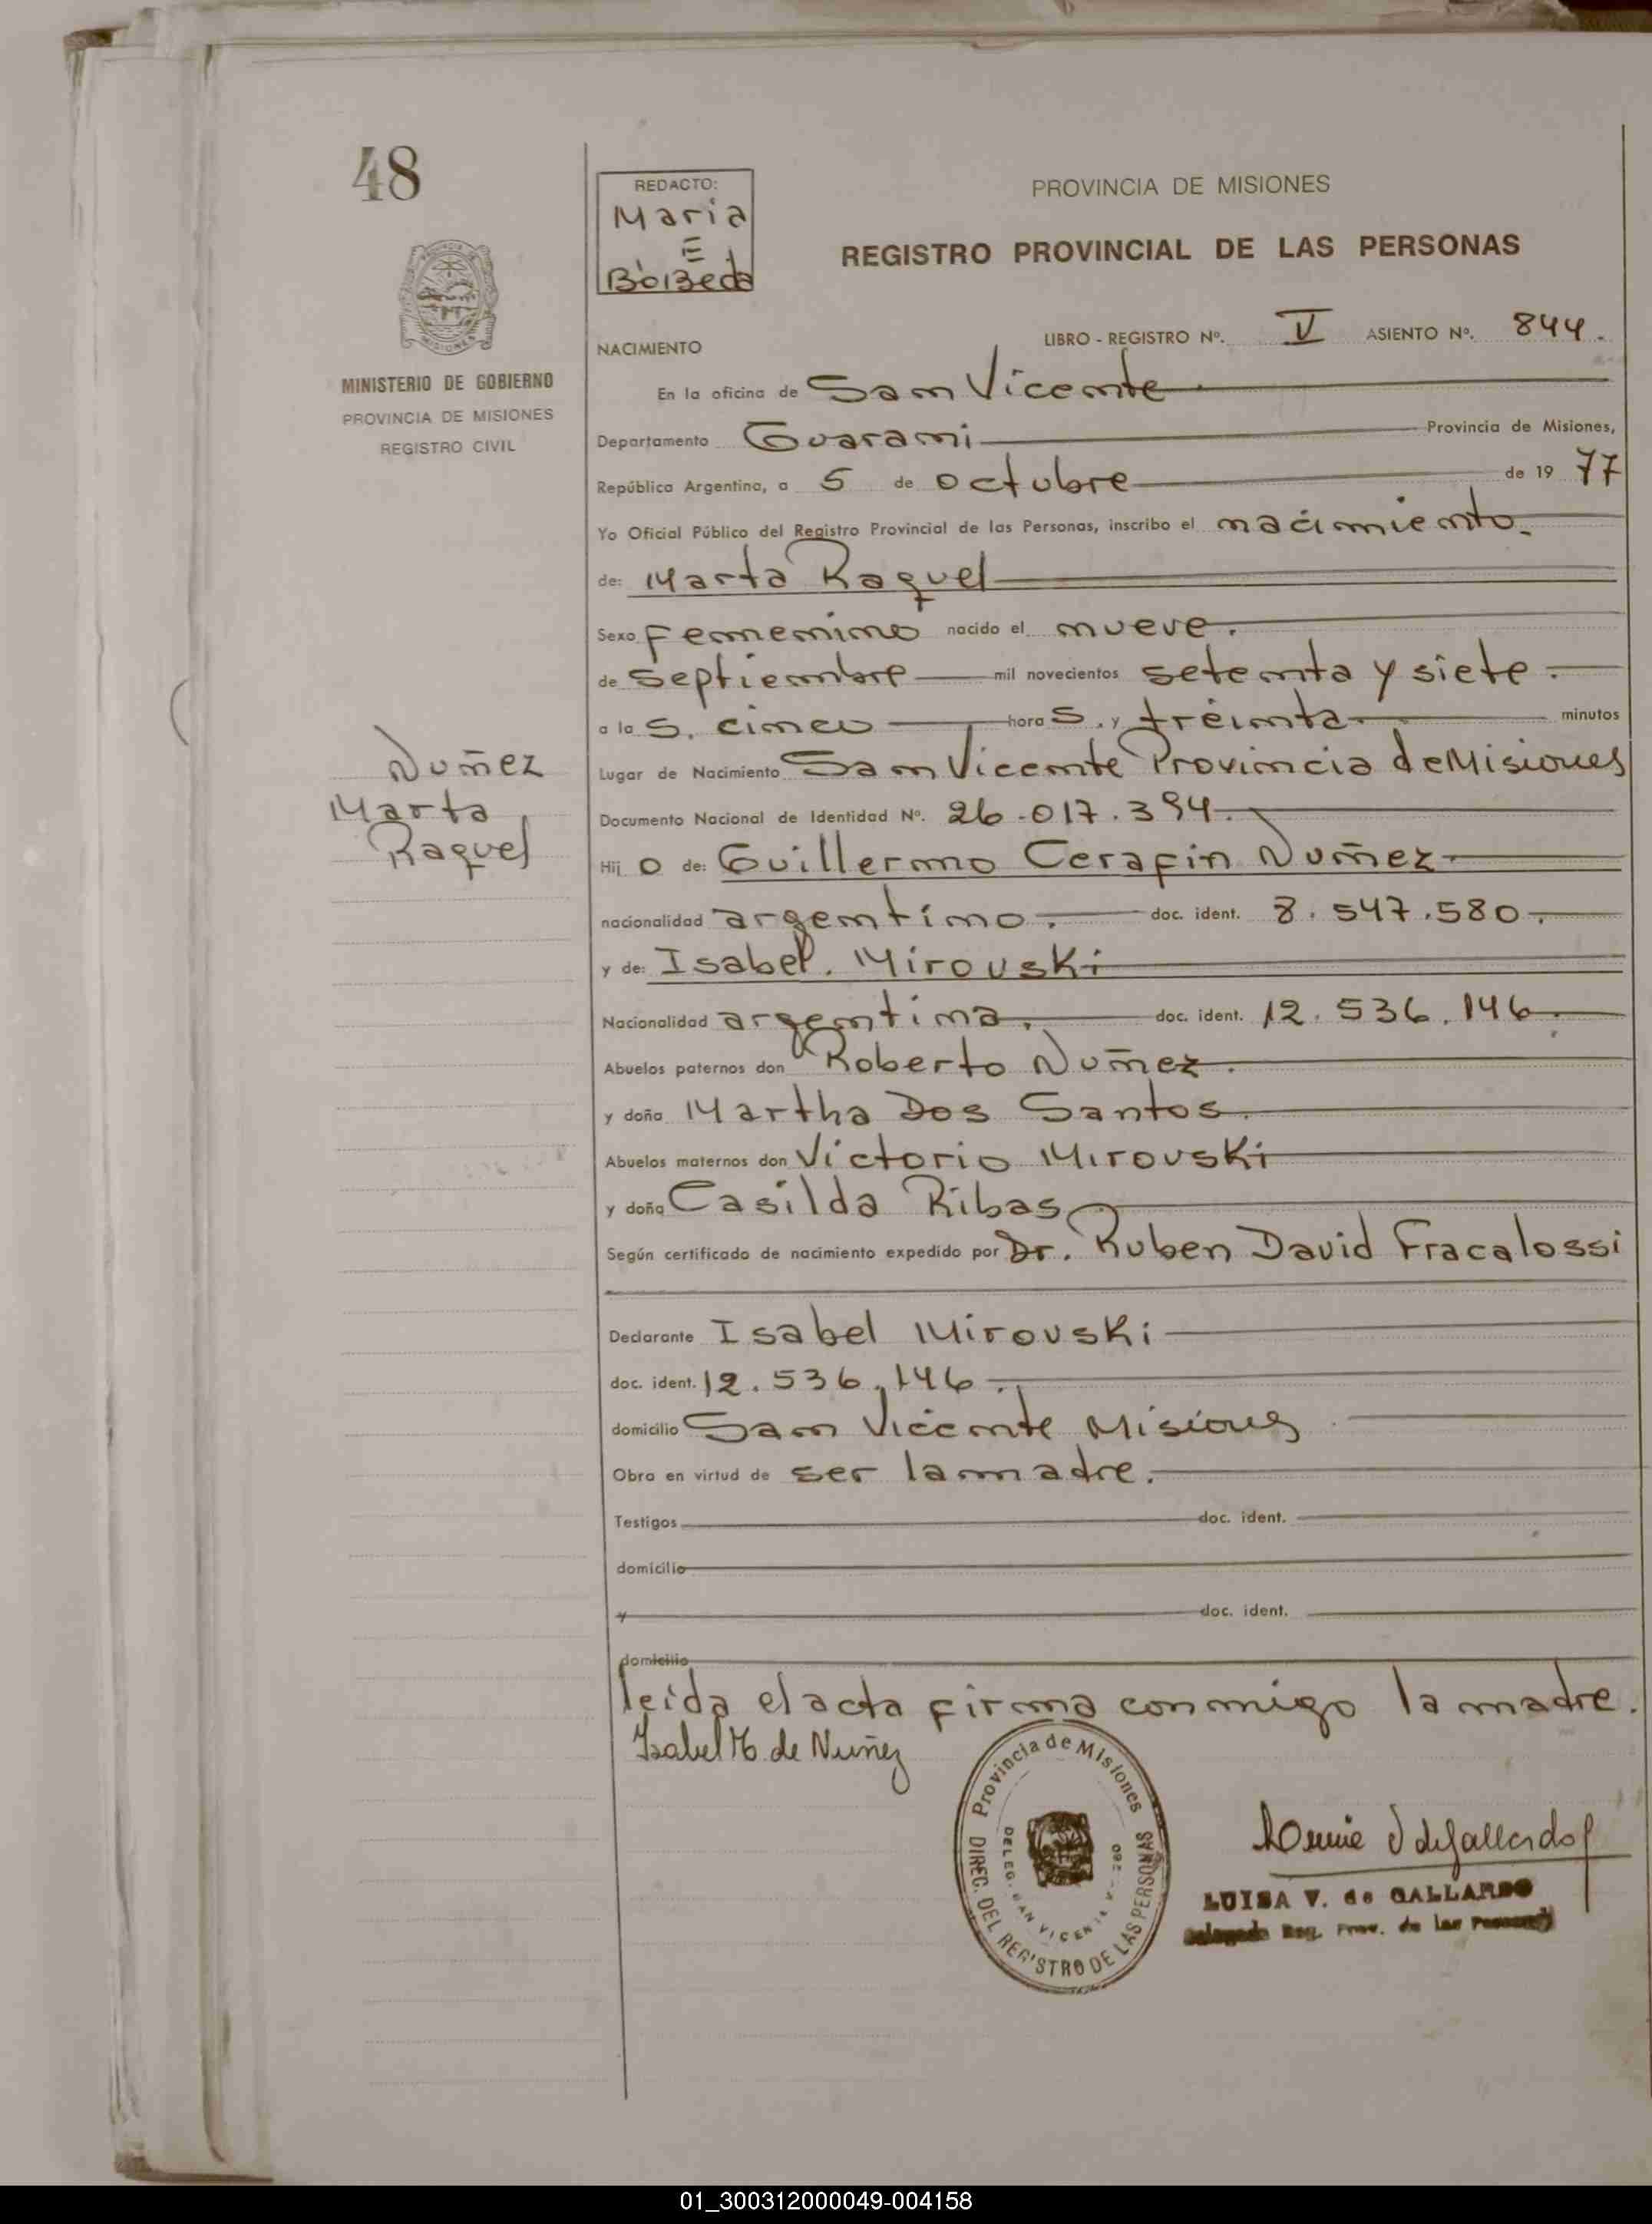 48
REDACTO:
Maria
E
MINISTERIO DE GOBIERNO
PROVINCIA DE MISIONES
REGISTRO CIVIL
PROVINCIA DE MISIONES
REGISTRO PROVINCIAL DE LAS PERSONAS
NACIMIENTO LIBRO - REGISTRO Nº. V ASIENTO Nº. 844.
En la oficina de San Vicente
Departamento Guarani Provincia de Misiones,
República Argentina, a 5 de octubre de 19 77
Yo Oficial Público del Registro Provincial de las Personas, inscribo el nacimiento.
de: Marta Raquel
Sexo Femenino nacido el nueve.
de Septiembre mil novecientos setenta y siete.
a la S. cinco hora S. y treinta minutos
Nuñez
Marta
Raquel
Lugar de Nacimiento San Vicente Provincia de Misiones
Documento Nacional de Identidad Nº. 26.017.394.
Hij o de: Guillermo Cerafin Nuñez
nacionalidad argentino. doc. ident. 8.547.580.
y de: Isabel. Mirouski
Nacionalidad argentina. doc. ident. 12.536.146.
Abuelos paternos don Roberto Nuñez.
y doña Martha Dos Santos.
Abuelos maternos don Victorio Mirouski
y doña Casilda Ribas
Según certificado de nacimiento expedido por Dr. Ruben David Fracalossi
Declarante Isabel Mirouski
doc. ident. 12.536.146.
domicilio San Vicente Misiones
Obra en virtud de ser la madre.
Testigos doc. ident.
domicilio
y doc. ident.
domicilio
leida el acta firma conmigo la madre.
Isabel M de Nuñez
Provincia de Misiones
DIREC. DEL REGISTRO DE LAS PERSONAS
DELEG. SAN VICENTE
LUISA V. de GALLARDO
Delegada Reg. Prov. de las Personas
01_300312000049-004158